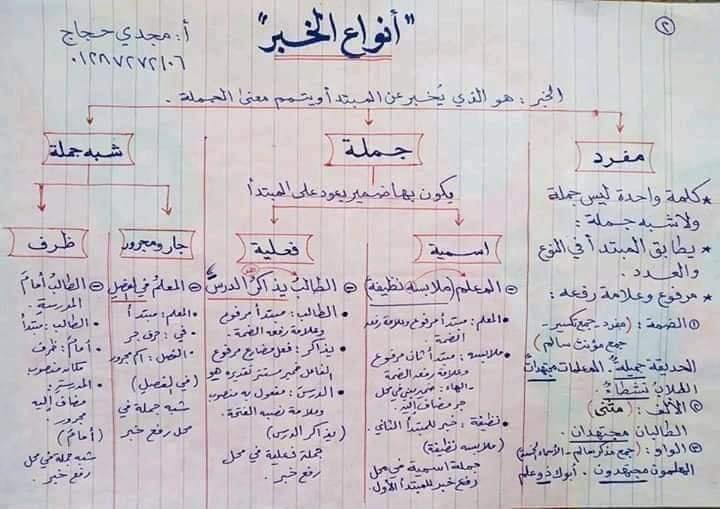 ٢
"أنواع الخبر"
أ: مجدي حجاج
٠١٢٨٧٢٧٢١٠٦
الخبر : هو الذي يُخبر عن المبتدأ ويتمم معنى الجملة .
مفرد
★ كلمة واحدة ليس جملة
ولا شبه جملة :
★ يطابق المبتدأ في النوع
والعدد .
★ مرفوع وعلامة رفعه :
① الضمة : (مفرد - جمع تكسير -
جمع مؤنث سالم)
الحديقة جميلةٌ . المعلمات مجتهداتٌ
الطلابُ نشطاءُ .
② الألف : (مثنى)
الطالبان مجتهدان .
③ الواو : (جمع مذكر سالم - الأسماء الخمسة)
المعلمون مجتهدون . أبوك ذو علم
جملة
يكون بها ضمير يعود على المبتدأ
اسمية
المعلم (ملابسه نظيفة)
• المعلم : مبتدأ مرفوع وعلامة رفعه
الضمة
• ملابسه : مبتدأ ثان مرفوع
وعلامة رفعه الضمة
- الهاء : ضمير مبني في محل
جر مضاف إليه .
• نظيفة : خبر للمبتدأ الثاني .
(ملابسه نظيفة)
جملة اسمية في محل
رفع خبر للمبتدأ الأول .
فعلية
الطالبُ يذاكرُ الدرسَ
هو
• الطالب : مبتدأ مرفوع
وعلامة رفعه الضمة .
• يذاكر : فعل مضارع مرفوع
الفاعل ضمير مستتر تقديره هو
• الدرسَ : مفعول به منصوب
وعلامة نصبه الفتحة .
(يذاكر الدرس)
جملة فعلية في محل
رفع خبر .
شبه جملة
جار ومجرور
المعلمُ في الفصلِ
• المعلم : مبتدأ
• في : حرف جر
• الفصل : اسم مجرور
(في الفصل)
شبه جملة في
محل رفع خبر
ظرف
الطالبُ أمامَ
المدرسةِ .
• الطالب : مبتدأ
• أمامَ : ظرف
مكان منصوب
• المدرسة :
مضاف إليه
مجرور .
(أمام)
شبه جملة في محل
رفع خبر .